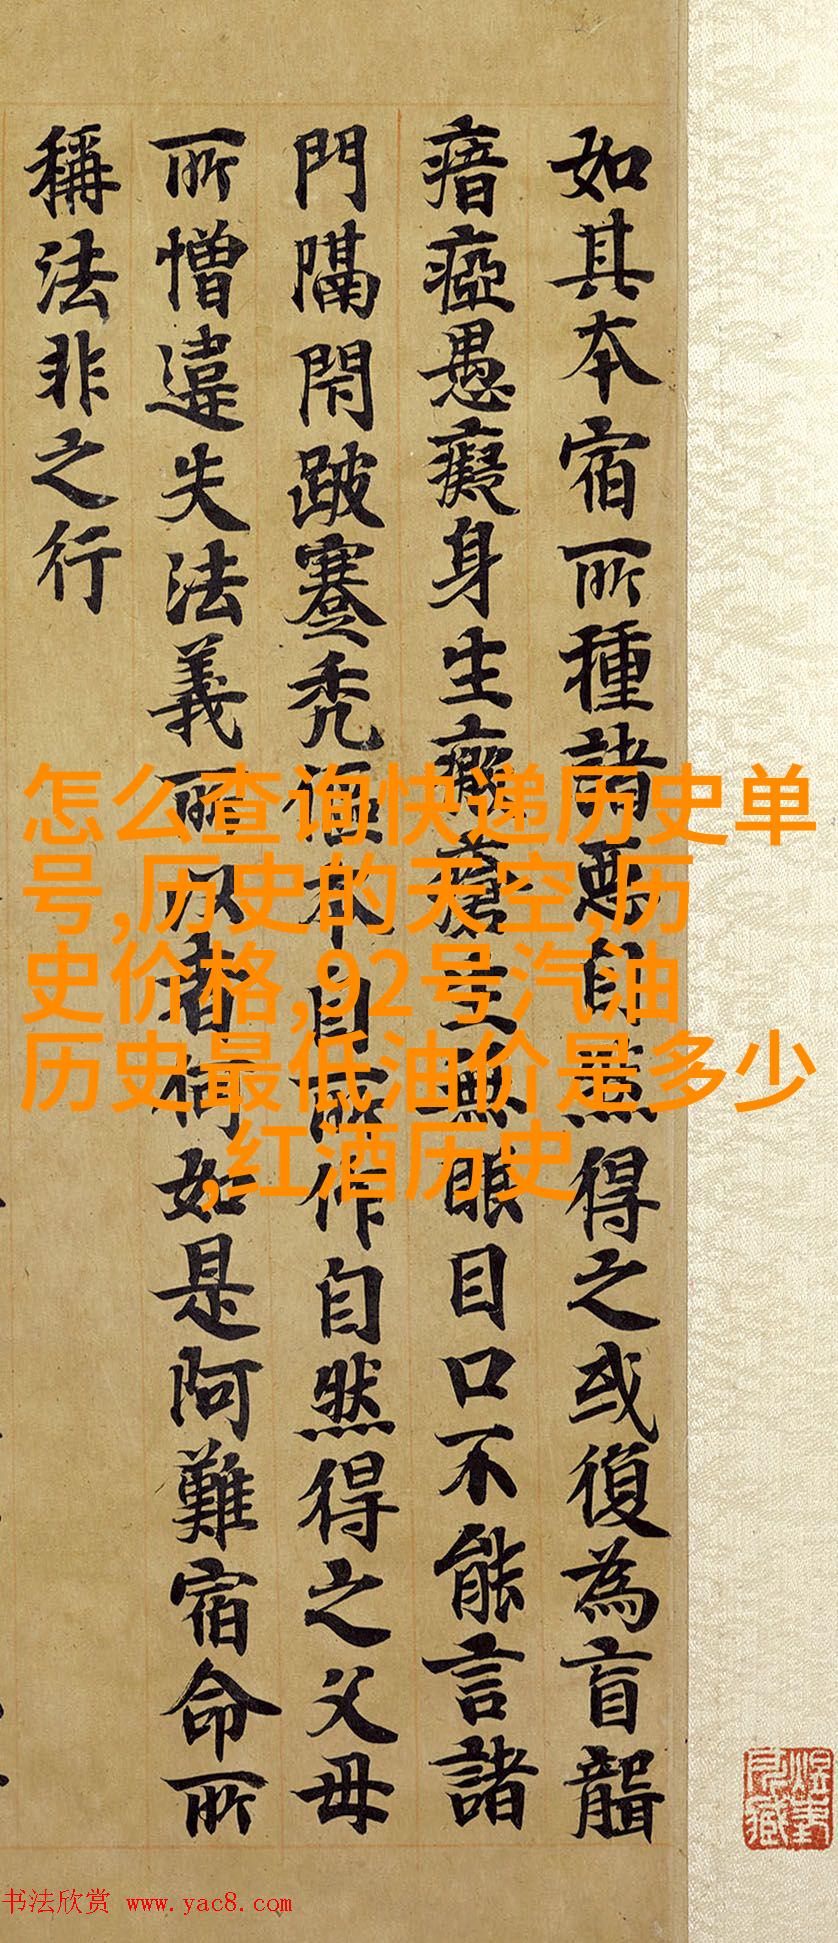 如其本宿所種諸惡自然得之或復為盲聾
瘖瘂愚癡身生瘡生無眼目口不能言諸
門隔閇跛蹇秃傴本自所作自然得之父母
所憎違失法義所以者何如是阿難宿命所
稱法非之行
怎么查询快递历史单
号,历史的天空,历
史价格,92号汽油
历史最低油价是多少
,红酒历史
书法欣赏 www.yac8.com